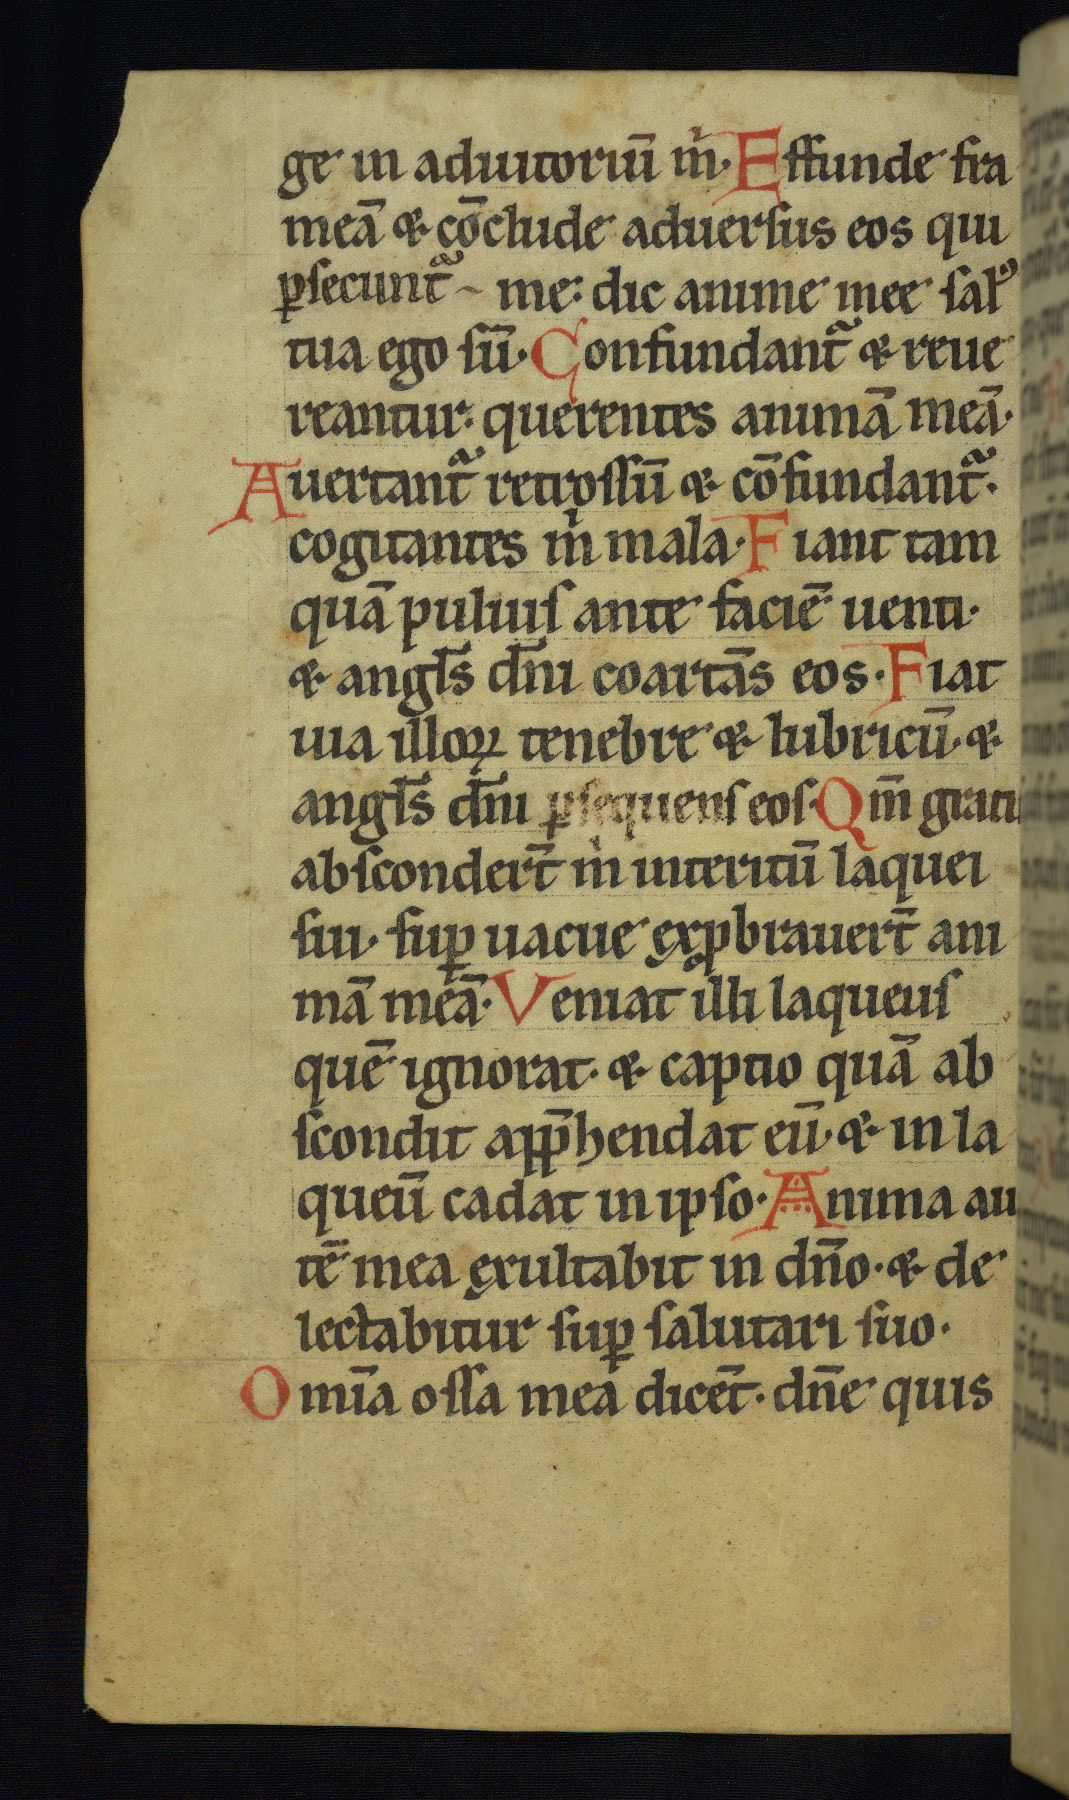 ge in adiutoriū m̍. Effunde fra
meā & cōclude aduersus eos qui
ꝑsecunt᷑ ~ me: dic anime mee sal᷒
tua ego sū. Confundant᷑ & reue
reantur: querentes animā meā.
Auertant᷑ retrossū & cōfundant᷑.
cogitantes m̍ mala. Fiant tam
quā puluis ante faciē uenti.
& angl̄s dn̄i coartās eos. Fiat
uia illoꝝ tenebre & lubricū. &
angl̄s dn̄i ꝑsequens eos. Qm̄ grati
abscondert̄ m̍ interitū laquei
sui. suꝑ uacue exꝓbrauert̄ ani
mā meā. Veniat illi laqueus
quē ignorat. & captio quā ab
scondit app̄hendat eū. & in la
queū cadat in ipso. Anima au
tē mea exultabit in dn̄o. & de
lectabitur suꝑ salutari suo.
Omīa ossa mea dicēt. dn̄e quis